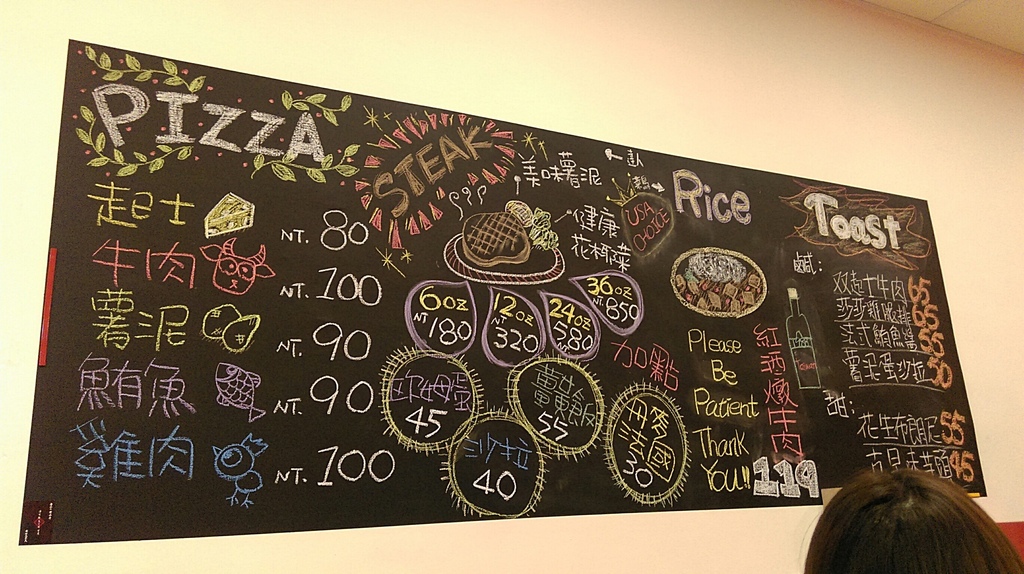 PIZZA
起士 NT. 80
牛肉 NT. 100
薯泥 NT. 90
鮪魚 NT. 90
雞肉 NT. 100
STEAK
美味薯泥
健康
花椰菜
USA
CHOICE
6oz
NT 180
12oz
NT 320
24oz
NT 580
36oz
NT 850
加點
歐姆蛋
45
黃金飯
55
沙拉
40
法國
30
Rice
Please
Be
Patient
Thank
You!!
紅酒燉牛肉
119
Toast
鹹:
双起士牛肉 65
莎莎雞腿排 65
法式鮪魚醬
薯泥蛋沙拉 50
甜:
花生布朗尼 55
45